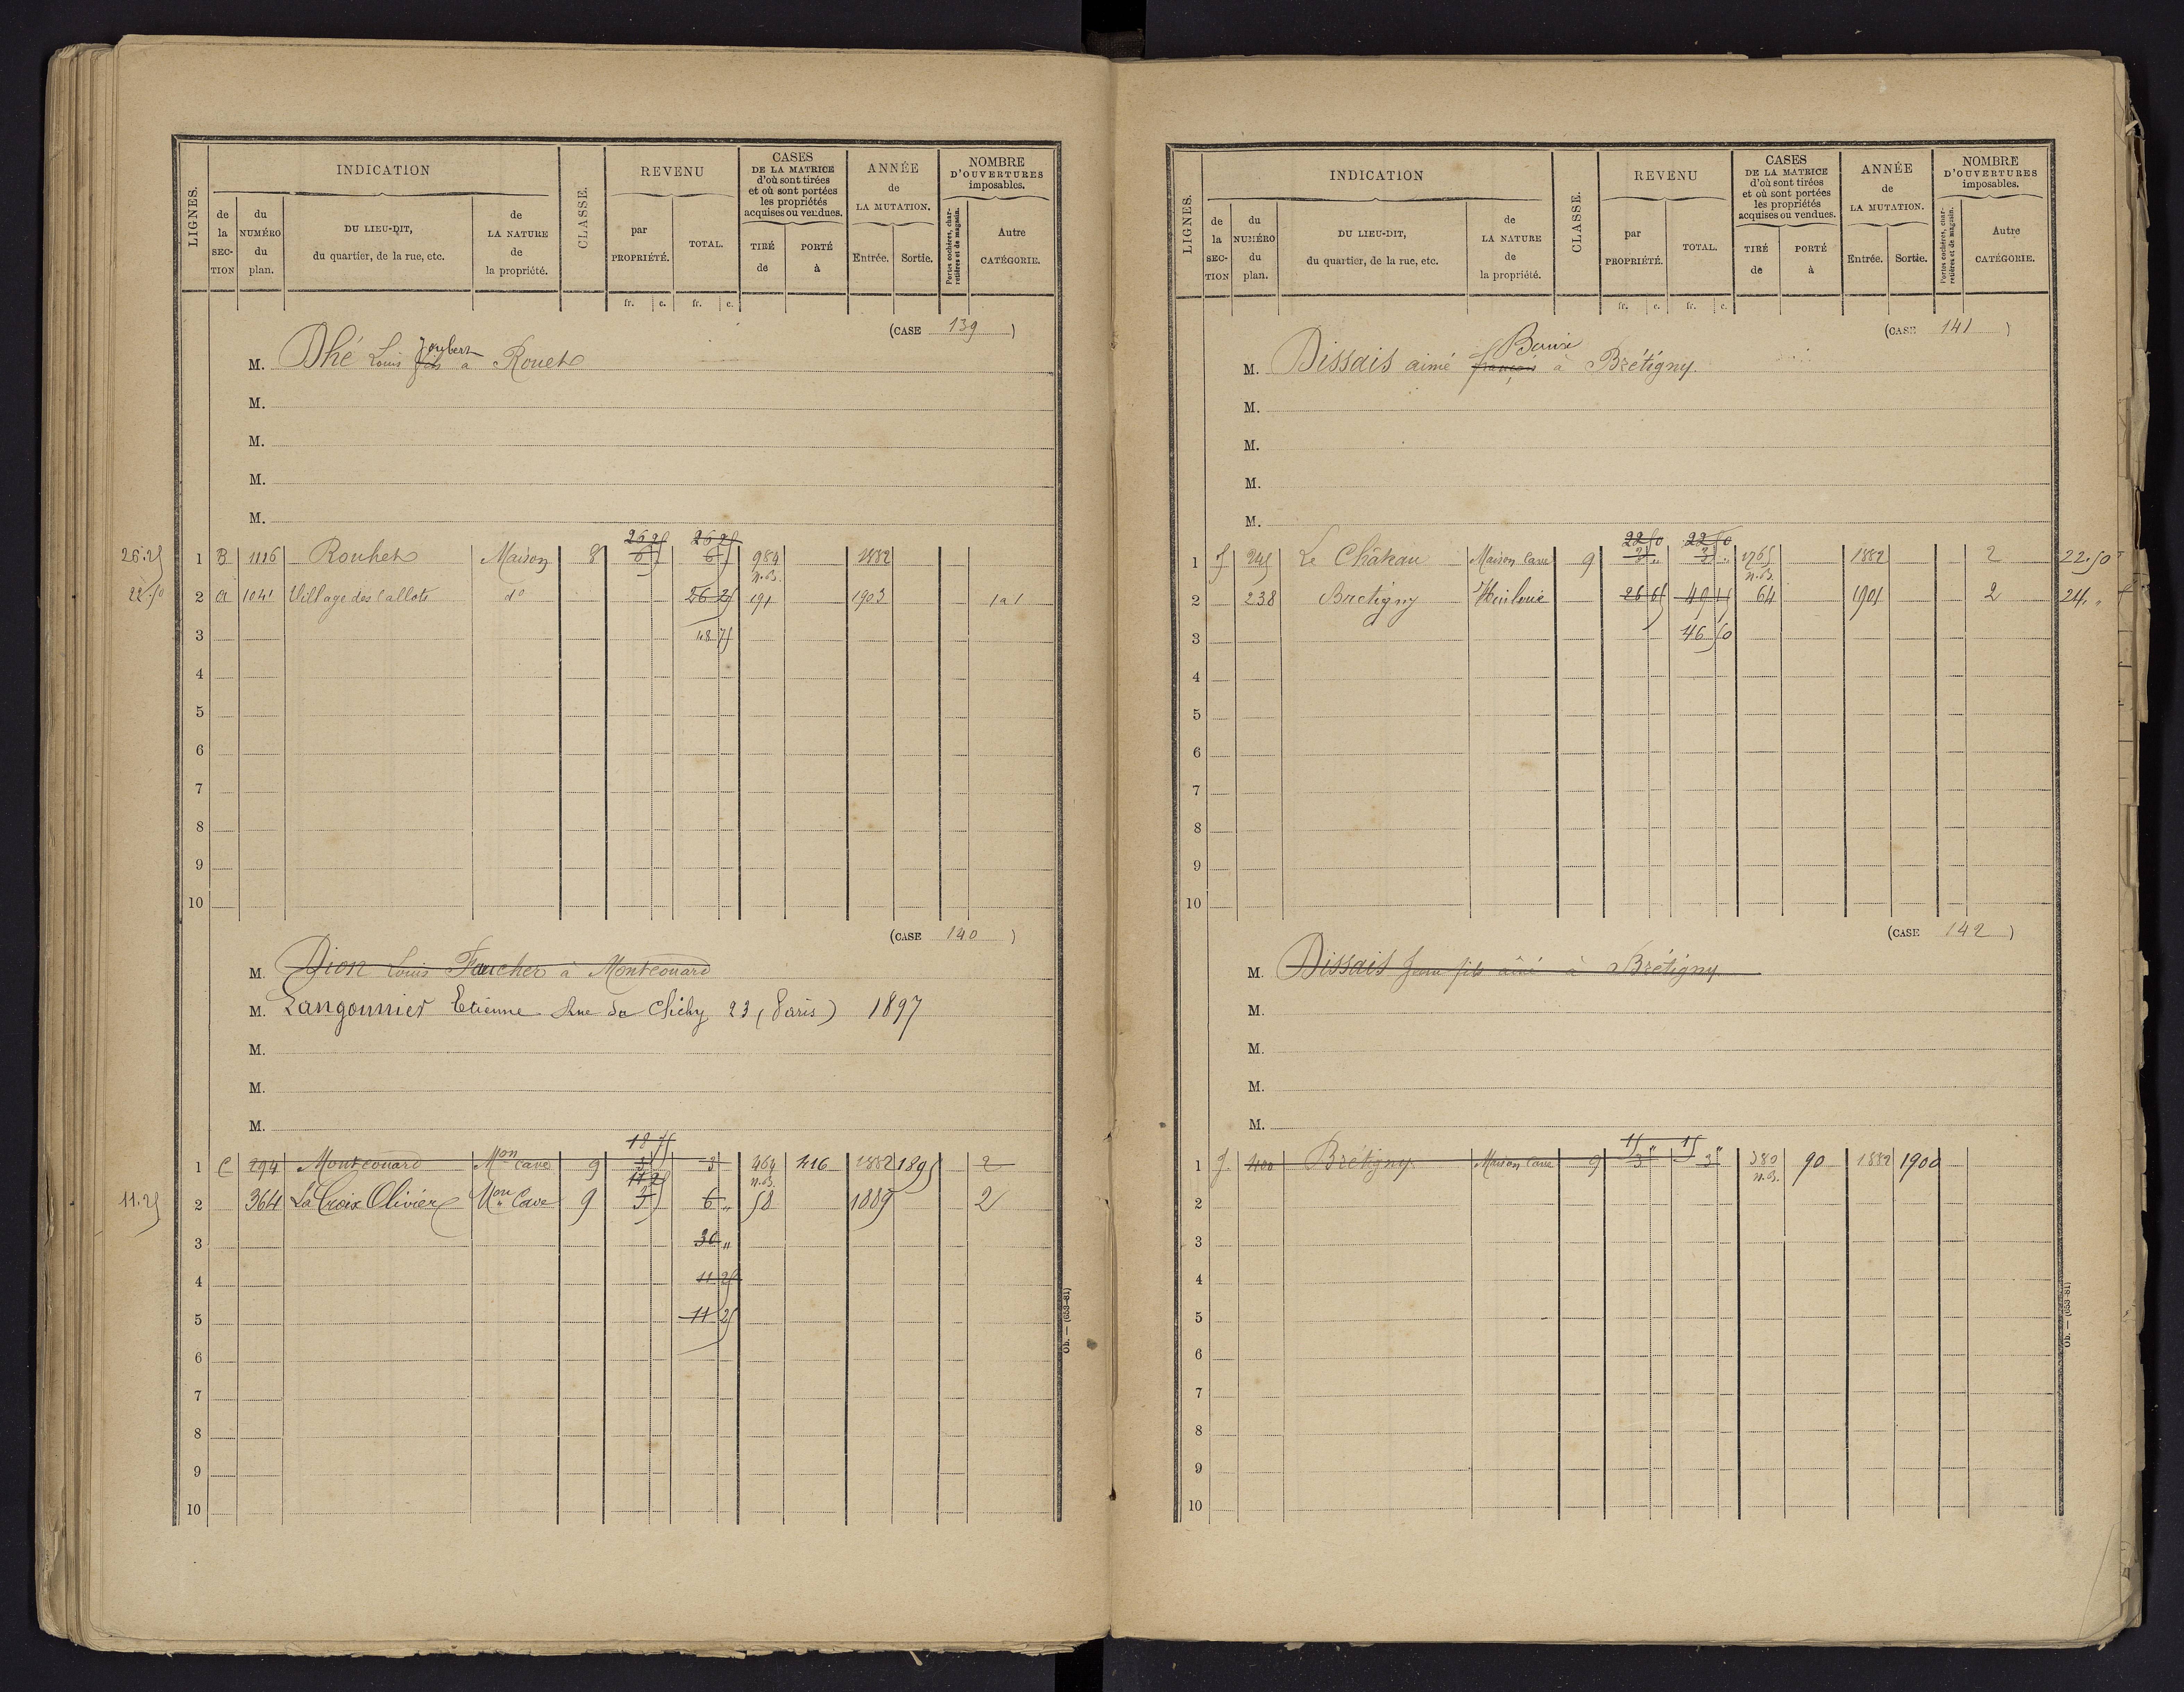 LIGNES.
INDICATION
de la SECTION
du NUMÉRO du plan.
DU LIEU-DIT, du quartier, de la rue, etc.
de LA NATURE de la propriété.
CLASSE.
REVENU
par PROPRIÉTÉ.
TOTAL.
CASES DE LA MATRICE d'où sont tirées et où sont portées les propriétés acquises ou vendues.
TIRÉ de
PORTÉ à
ANNÉE de LA MUTATION.
Entrée.
Sortie.
NOMBRE D'OUVERTURES imposables.
Portes cochères, charretières et de magasin.
Autre CATÉGORIE.
fr. c. fr. c.
(CASE 139)
Joubert
M. Dhé Louis fils à Rouet
M.
M.
M.
M.
26 25 26 25
26.25 1 B 1116 Rouhet Maison 8 6 75 6 75 984 1882
n.B.
22.50 2 a 1041 Village des Callots do 26 25 191 1903 1 a 1
3 48 75
4
5
6
7
8
9
10
(CASE 140)
M. Dion Louis Faucher à Montcouard
M. Langoumier Etienne Rue de Clichy 23 (Paris) 1897
M.
M.
M.
18 75
1 C 294 Montcouard Mon cave 9 3 3 464 416 1882 1895 2
11 25 n.B.
11.25 2 364 La Croix Olivier Mon Cave 9 3 6 " 58 1889 2
3 30 "
4 11 25
5 11 25
6
7
8
9
10
Ob. — (653-81)
LIGNES.
INDICATION
de la SECTION
du NUMÉRO du plan.
DU LIEU-DIT, du quartier, de la rue, etc.
de LA NATURE de la propriété.
CLASSE.
REVENU
par PROPRIÉTÉ.
TOTAL.
CASES DE LA MATRICE d'où sont tirées et où sont portées les propriétés acquises ou vendues.
TIRÉ de
PORTÉ à
ANNÉE de LA MUTATION.
Entrée.
Sortie.
NOMBRE D'OUVERTURES imposables.
Portes cochères, charretières et de magasin.
Autre CATÉGORIE.
fr. c. fr. c.
(CASE 141)
M. Dissais aimé françois à Brétigny.
M.
M.
M.
M.
22 50 22 50
1 J 245 Le Château Maison Cave 9 3 " 3 " 1765 1882 2 22.50
n.B.
2 238 Bretigny 26 65 49 15 64 1901 2 24. "
3 46 50
4
5
6
7
8
9
10
(CASE 142)
M. Dissais Jean fils aîné à Brétigny
M.
M.
M.
M.
15 " 15 "
1 J. 400 Brétigny. Maison Cave 9 3 3 380 90 1882 1900
n.B.
2
3
4
5
6
7
8
9
10
Ob. — (653-81)